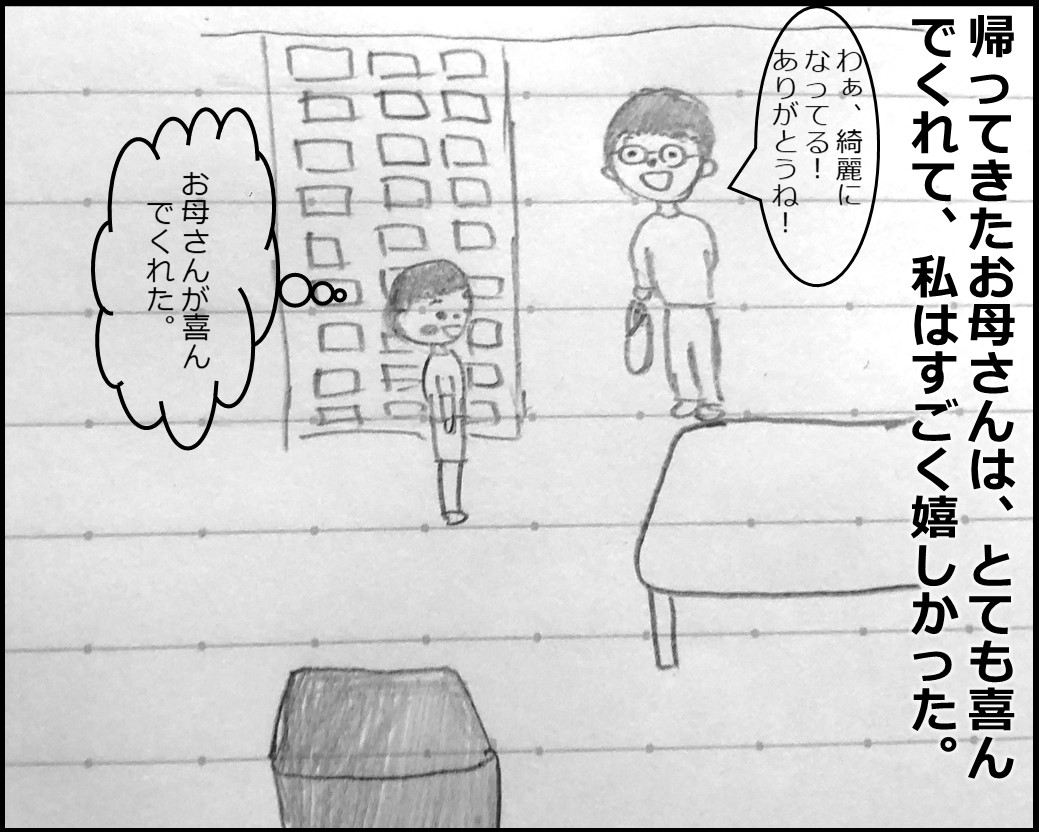 帰ってきたお母さんは、とても喜ん
でくれて、私はすごく嬉しかった。
わぁ、綺麗に
なってる！
ありがとうね！
お母さんが喜ん
でくれた。